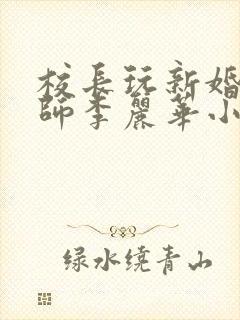 校長玩新婚
師李麗華小
绿水绕青山